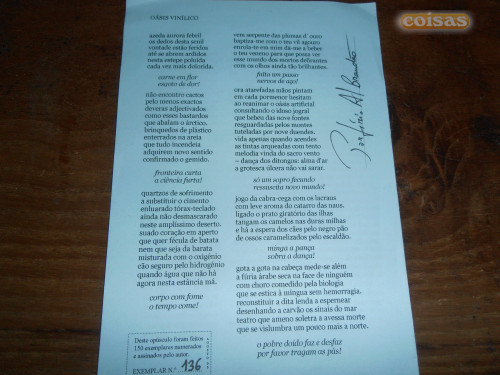 OÁSIS VINÍLICO
azeda aurora febril
os dedos desta azul
vontade estão feridos
até se abrem ardidos
nesta estepe polida
cada vez mais dolorida.
carne em flor
muito de dor!
não encontro cactos
pelo menos exactos
deveras adjectivados
como esses bastardos
que abalam o árctico.
brinquedos de plástico
enterrados na areia
que tudo incendeia
adquirem novo sentido
confirmado o gemido.
fronteira curta
a ciência furta!
quartzos de sofrimento
a substituir o cimento
enluarado tórax-teclado
ainda não desmascarado
neste amplíssimo deserto.
suado coração em aperto
que quer fécula de batata
nem que seja da barata
misturada com o oxigénio
cão seguro pelo hidrogénio
quando água que não há
agora nesta estância má.
corpo com fome
o tempo come!
Deste opúsculo foram feitos
150 exemplares numerados
e assinados pelo autor.
EXEMPLAR N.º 136
vem serpente das plumas d'ouro
baptiza-me com o teu vil agouro
enrola-te em mim dá-me a beber
o teu veneno para que possa ver
esse mundo dos mortos delirantes
com os olhos ainda tão brilhantes.
falta um passo
nervos de aço!
ora atarefadas mãos pintam
em cada pormenor hesitam
ao reanimar o oásis artificial
consultando o idoso jogral
que bebeu das nove fontes
resguardadas pelos montes
tuteladas por nove duendes.
vida apenas quando acendes
as tintas arqueadas com tento
melodia vinda do sacro vento
– dança dos ditongos: alma d'ar
a grotesca úlcera não vai sarar.
só um sopro fecundo
ressuscita novo mundo!
jogo da cabra-cega com os lacraus
com leve aroma do catarro das naus.
ligado o prato giratório das ilhas
tangam os camelos nas duras milhas
e há a espera dos cães pelo negro pão
de ossos caramelizados pelo escaldão.
mingua a pança
sobra a dança!
gota a gota na cabeça mede-se além
a fúria árabe seca na face de ninguém
com choro comedido pela biologia
que se estica à míngua sem hemorragia.
reconstituir a dita lenda a espernear
desenhando a carvão os sinais do mar
teatro que ameno soletra a avessa morte
que se vislumbra um pouco mais a norte.
o pobre doido faz e desfaz
por favor tragam as pás!
coisas